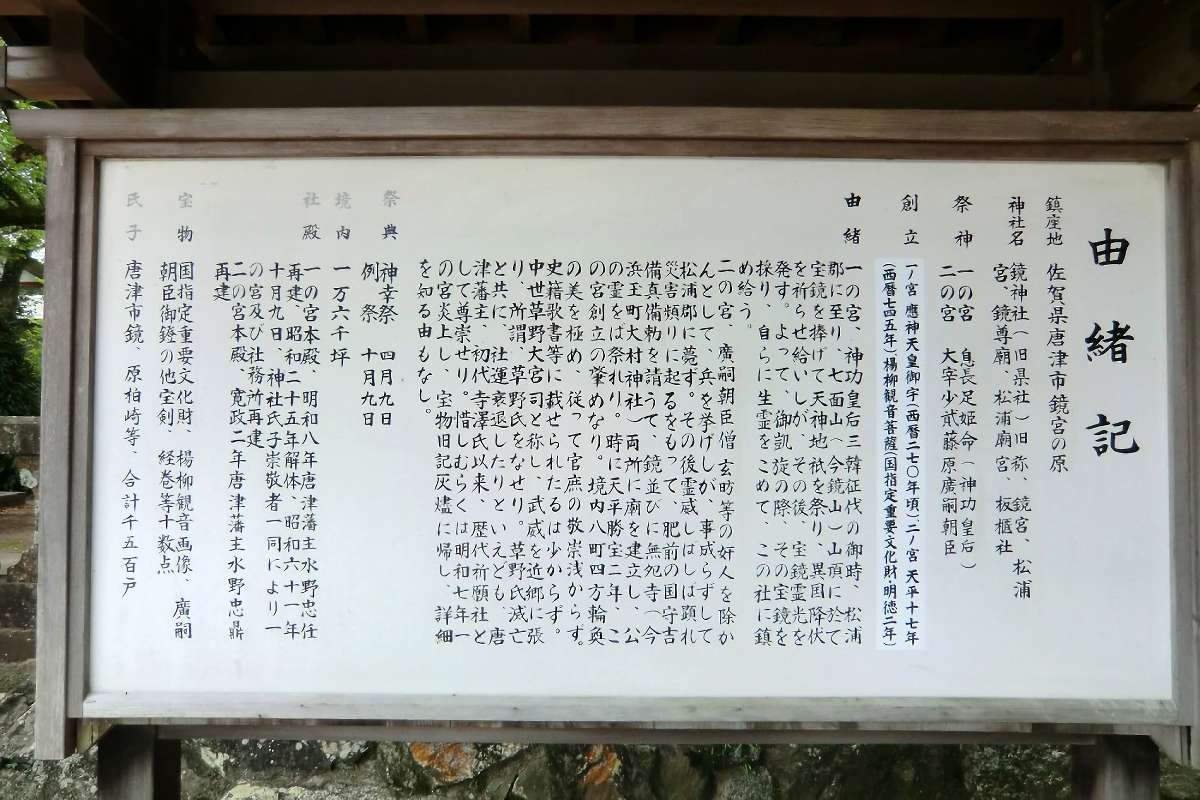 由緒記
鎮座地 佐賀県唐津市鏡宮の原
神社名 鏡神社(旧県社)旧称、鏡宮、松浦
宮、鏡尊廟、松浦廟宮、板櫃社
祭神 一の宮 息長足姫命(神功皇后)
二の宮 大宰少貳藤原廣嗣朝臣
創立 一ノ宮 應神天皇御宇(西暦二七〇年頃)、二ノ宮 天平十七年
(西暦七四五年)楊柳観音菩薩(国指定重要文化財・明徳二年)
由緒 一の宮、神功皇后三韓征伐の御時、松浦
郡に至り、七面山(今鏡山)山頂に於て
宝鏡を捧げて天神地祇を祭り、異国降伏
を祈らせ給いしが、その後、宝鏡霊光を
発す。よって、御凱旋の際、その宝鏡を
採り、自らに生霊をこめて、この社に鎮
め給う。
二の宮、廣嗣朝臣僧玄昉等の奸人を除か
んとして、兵を挙げしが、事成らずして
松浦郡に薨ず。その後霊威しばしば顕れ
災害頻りに起るをもって、肥前の国守吉
備真備勅を請うて、鏡並びに無怨寺(今
浜玉町大村神社)両所に廟を建立し、公
の霊をば祭れり。時に天平勝宝二年、こ
の宮創立の肇めなり。境内八町四方輪奐
の美を極め、従って官庶の敬崇浅からず。
史籍歌書等に載せられたるは少からず。
中世草野大宮司と称し、武威を近郷に張
り、所謂、草野氏をなせり。草野氏滅亡
と共に、社運衰退したりといえども、唐
津藩主、初代寺澤氏以来、歴代祈願社と
して尊崇せり。惜しむらくは明和七年一
の宮炎上し、宝物旧記灰燼に帰し、詳細
を知る由もなし。
祭典 神幸祭 四月九日
例祭 十月九日
境内 一万六千坪
社殿 一の宮本殿、明和八年唐津藩主水野忠任
再建、昭和二十五年解体、昭和六十一年
十月九日、神社氏子崇敬者一同により一
の宮及び社務所再建
二の宮本殿、寛政二年唐津藩主水野忠鼎
再建
宝物 国指定重要文化財、楊柳観音画像、廣嗣
朝臣御鐙の他宝剣、経巻等十数点
氏子 唐津市鏡、原柏崎等、合計千五百戸